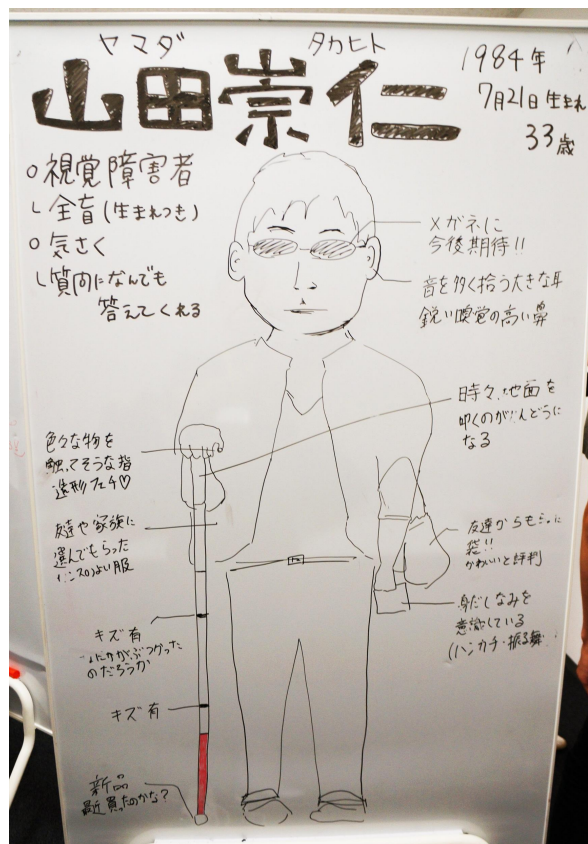 ヤマダ タカヒト
山田崇仁
1984年
7月21日生まれ
33歳
○視覚障害者
└全盲(生まれつき)
○気さく
└質問になんでも
答えてくれる
メガネに
今後期待!!
音を多く拾う大きな耳
鋭い嗅覚の高い鼻
時々、地面を
叩くのがめんどうに
なる
色々な物を
触ってそうな指
造形フェチ♡
友達や家族に
選んでもらった
センスのよい服
友達からもらった
袋!!
かわいいと評判
身だしなみを
意識している
(ハンカチ・振る舞
キズ有
なにかがぶつかった
のだろうか
キズ有
新品
最近買ったのかな?